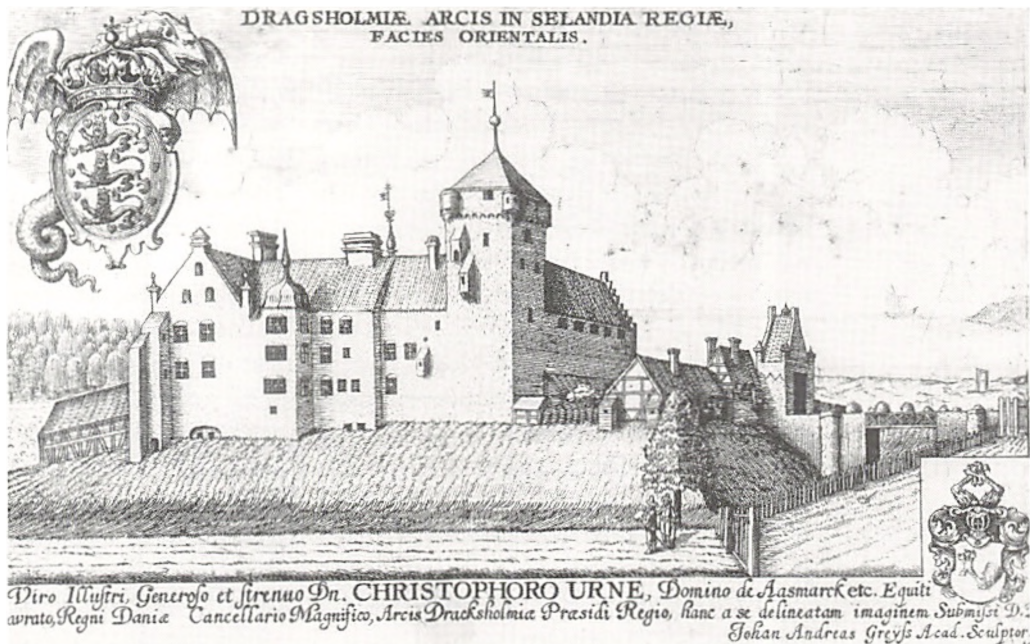 DRAGSHOLMIÆ ARCIS IN SELANDIA REGIÆ,
FACIES ORIENTALIS.
Viro Illuſtri, Generoſo et ſtrenuo Dn. CHRISTOPHORO URNE, Domino de Aasmarck etc. Equiti
aurato, Regni Daniæ Cancellario Magnifico, Arcis Dracksholmiæ Præsidi Regio, hanc a se delineatam imaginem Submiſsi D.
Johan Andreas Greyſs Acad. Sculptor